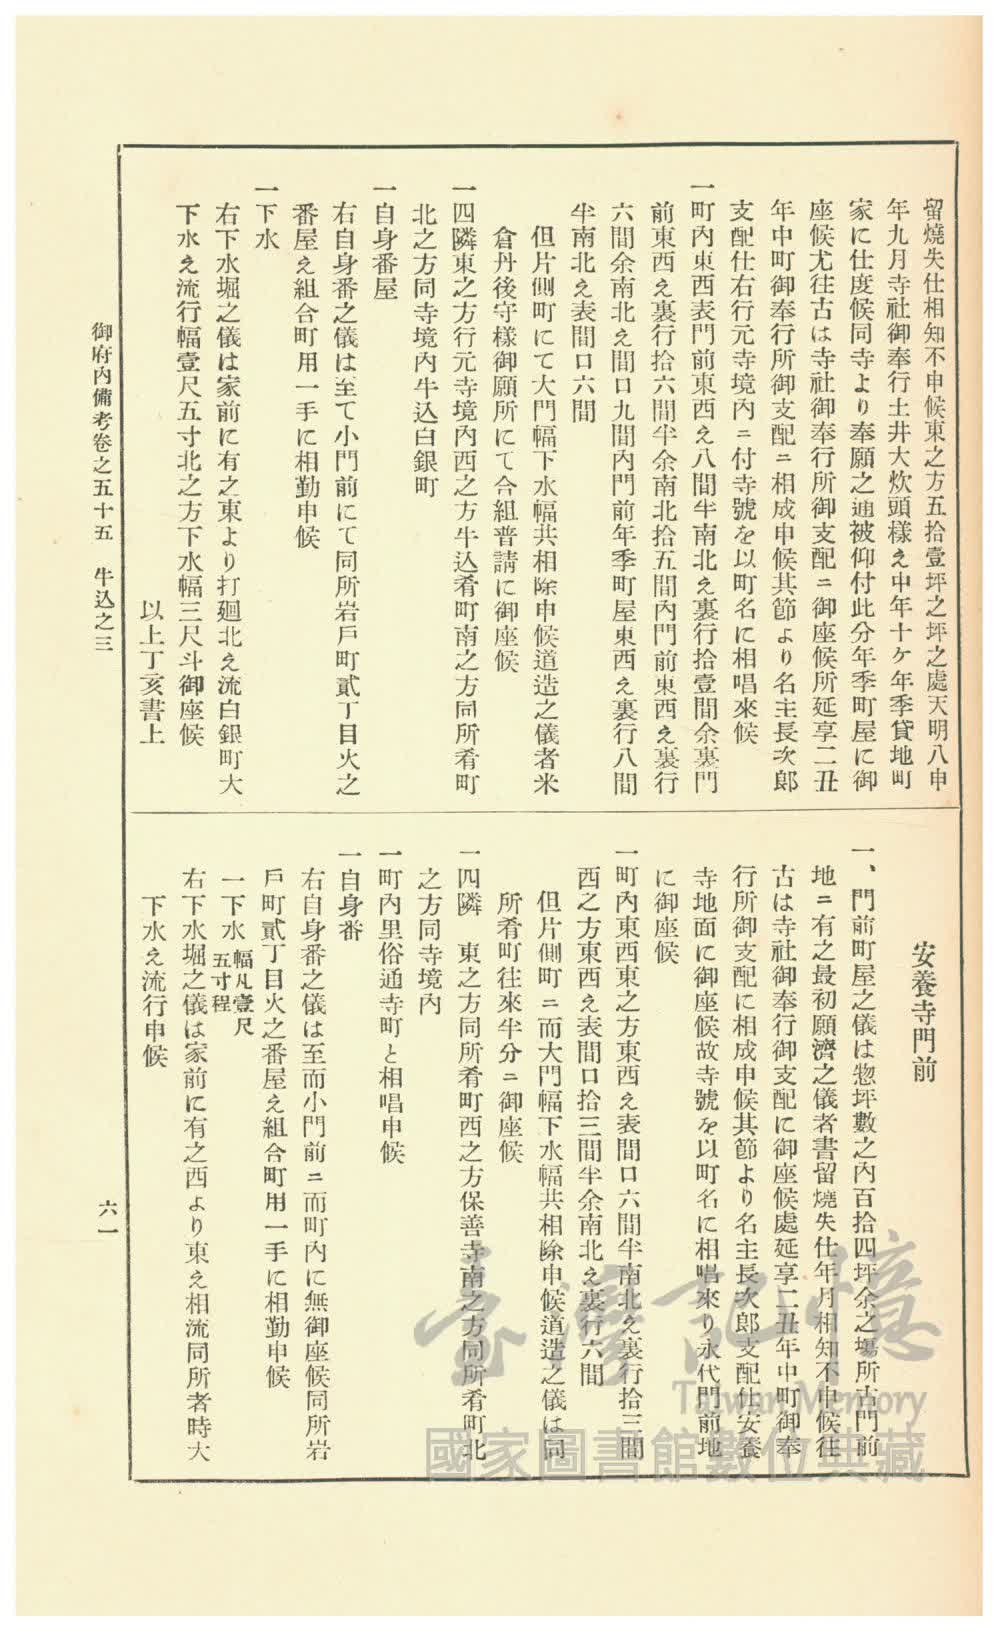 留燒失仕相知不申候東之方五拾壹坪之坪之處天明八申
年九月寺社御奉行土井大炊頭樣え申年十ケ年季貸地町
家に仕度候同寺より奉願之通被仰付此分年季町屋に御
座候尤往古は寺社御奉行所御支配ニ御座候所延享二丑
年中町御奉行所御支配ニ相成申候其節より名主長次郎
支配仕右行元寺境內ニ付寺號を以町名に相唱來候
一町內東西表門前東西え八間半南北え裏行拾壹間余裏門
前東西え裏行拾六間半余南北拾五間內門前東西え裏行
六間余南北え間口九間內門前年季町屋東西え裏行八間
半南北え表間口六間
但片側町にて大門幅下水幅共相除申候道造之儀者米
倉丹後守樣御願所にて合組普請に御座候
一四隣東之方行元寺境內西之方牛込肴町南之方同所肴町
北之方同寺境內牛込白銀町
一自身番屋
右自身番之儀は至て小門前にて同所岩戶町貳丁目火之
番屋え組合町用一手に相勤申候
一下水
右下水堀之儀は家前に有之東より打廻北え流白銀町大
下水え流行幅壹尺五寸北之方下水幅三尺斗御座候
以上丁亥書上
安養寺門前
一、門前町屋之儀は惣坪數之內百拾四坪余之場所古門前
地ニ有之最初願濟之儀者書留燒失仕年月相知不申候往
古は寺社御奉行御支配に御座候處延享二丑年中町御奉
行所御支配に相成申候其節より名主長次郎支配仕安養
寺地面に御座候故寺號を以町名に相唱來り永代門前地
に御座候
一町內東西東之方東西え表間口六間半南北え裏行拾三間
西之方東西え表間口拾三間半余南北え裏行六間
但片側町ニ而大門幅下水幅共相除申候道造之儀は同
所肴町往來半分ニ御座候
一四隣　東之方同所肴町西之方保善寺南之方同所肴町北
之方同寺境內
一町內里俗通寺町と相唱申候
一自身番
右自身番之儀は至而小門前ニ而町內に無御座候同所岩
戶町貳丁目火之番屋え組合町用一手に相勤申候
一下水幅凡壹尺五寸程
右下水堀之儀は家前に有之西より東え相流同所者時大
下水え流行申候
御府內備考卷之五十五　牛込之三
六一
臺灣記憶
Taiwan Memory
國家圖書館數位典藏